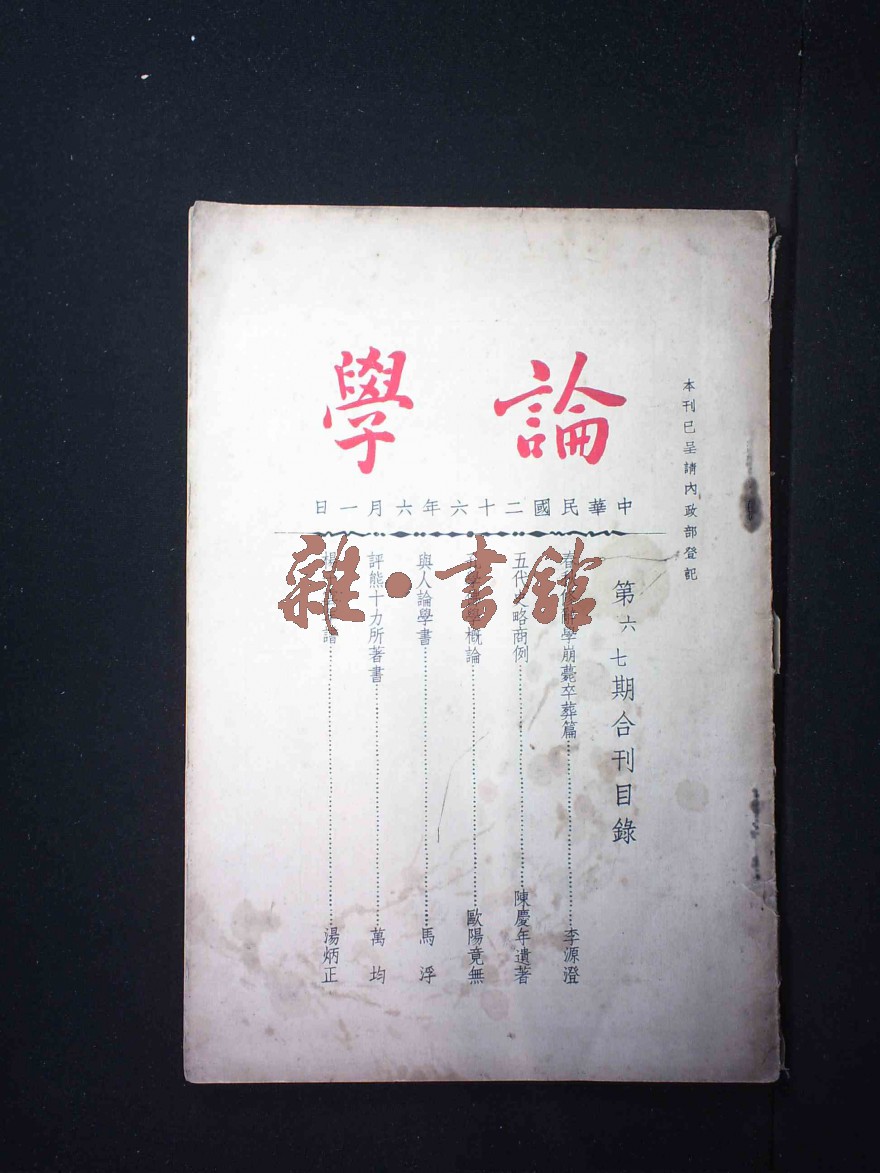 論學
本刊已呈請內政部登記
中華民國二十六年六月一日
第六七期合刊目錄
春秋崩薨卒葬篇 李源澄
五代史略商例 陳慶年遺著
概論 歐陽竟無
與人論學書 馬浮
評熊十力所著書 萬均
楊譜 湯炳正
雜·書館